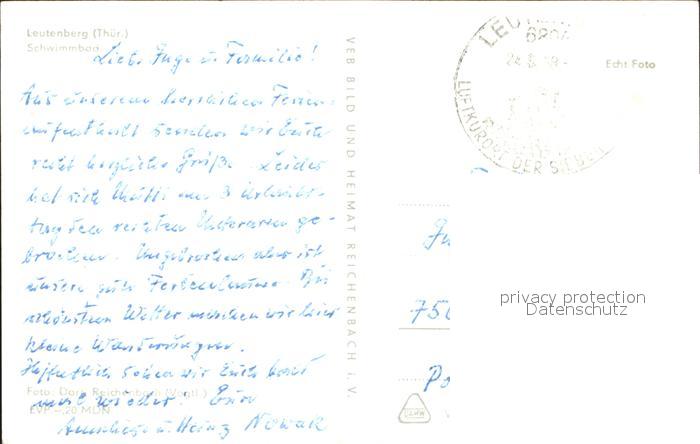 Leutenberg (Thür.)
Schwimmbad
Liebe Inge u. Familie!
Aus unserem herrlichen Ferien-
aufenthalt senden wir Euch
recht herzliche Grüße. Leider
hat sich Mutti am 3. Urlaubs-
tag den rechten Unterarm ge-
brochen. Ungebrochen aber ist
unsere gute Ferienlaune. Bei
schönstem Wetter machen wir hier
kleine Wanderungen.
Hoffentlich sehen wir Euch bald
mal wieder. Eure
u. Heinz Nowak
Foto: Darr, Reichenbach (Vogtl.)
EVP –,20 MDN
VEB BILD UND HEIMAT REICHENBACH i. V.
LEUT
LUFTKURORT DER SIEBEN
Echt Foto
750
privacy protection
Datenschutz